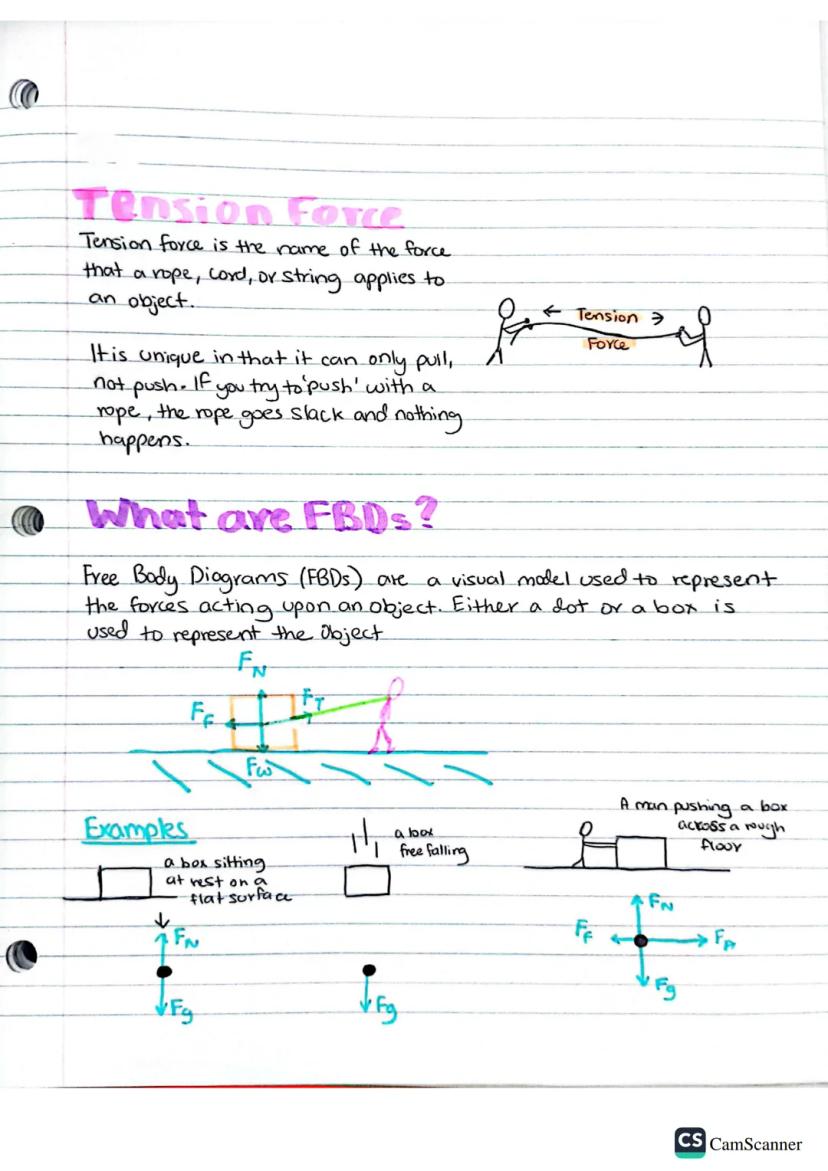 Tension Force
Tension force is the name of the force
that a rope, cord, or string applies to
an object.
← Tension →
Force
It is unique in that it can only pull,
not push. If you try to 'push' with a
rope, the rope goes slack and nothing
happens.
What are FBDs?
Free Body Diagrams (FBDs) are a visual model used to represent
the forces acting upon an object. Either a dot or a box is
used to represent the object
FN
FT
Ff
Fw
Examples
a box sitting
at rest on a
flat surface
a box
free falling
A man pushing a box
across a rough
floor
FN
Fg
Fg
FN
Ff
FA
Fg
CS CamScanner